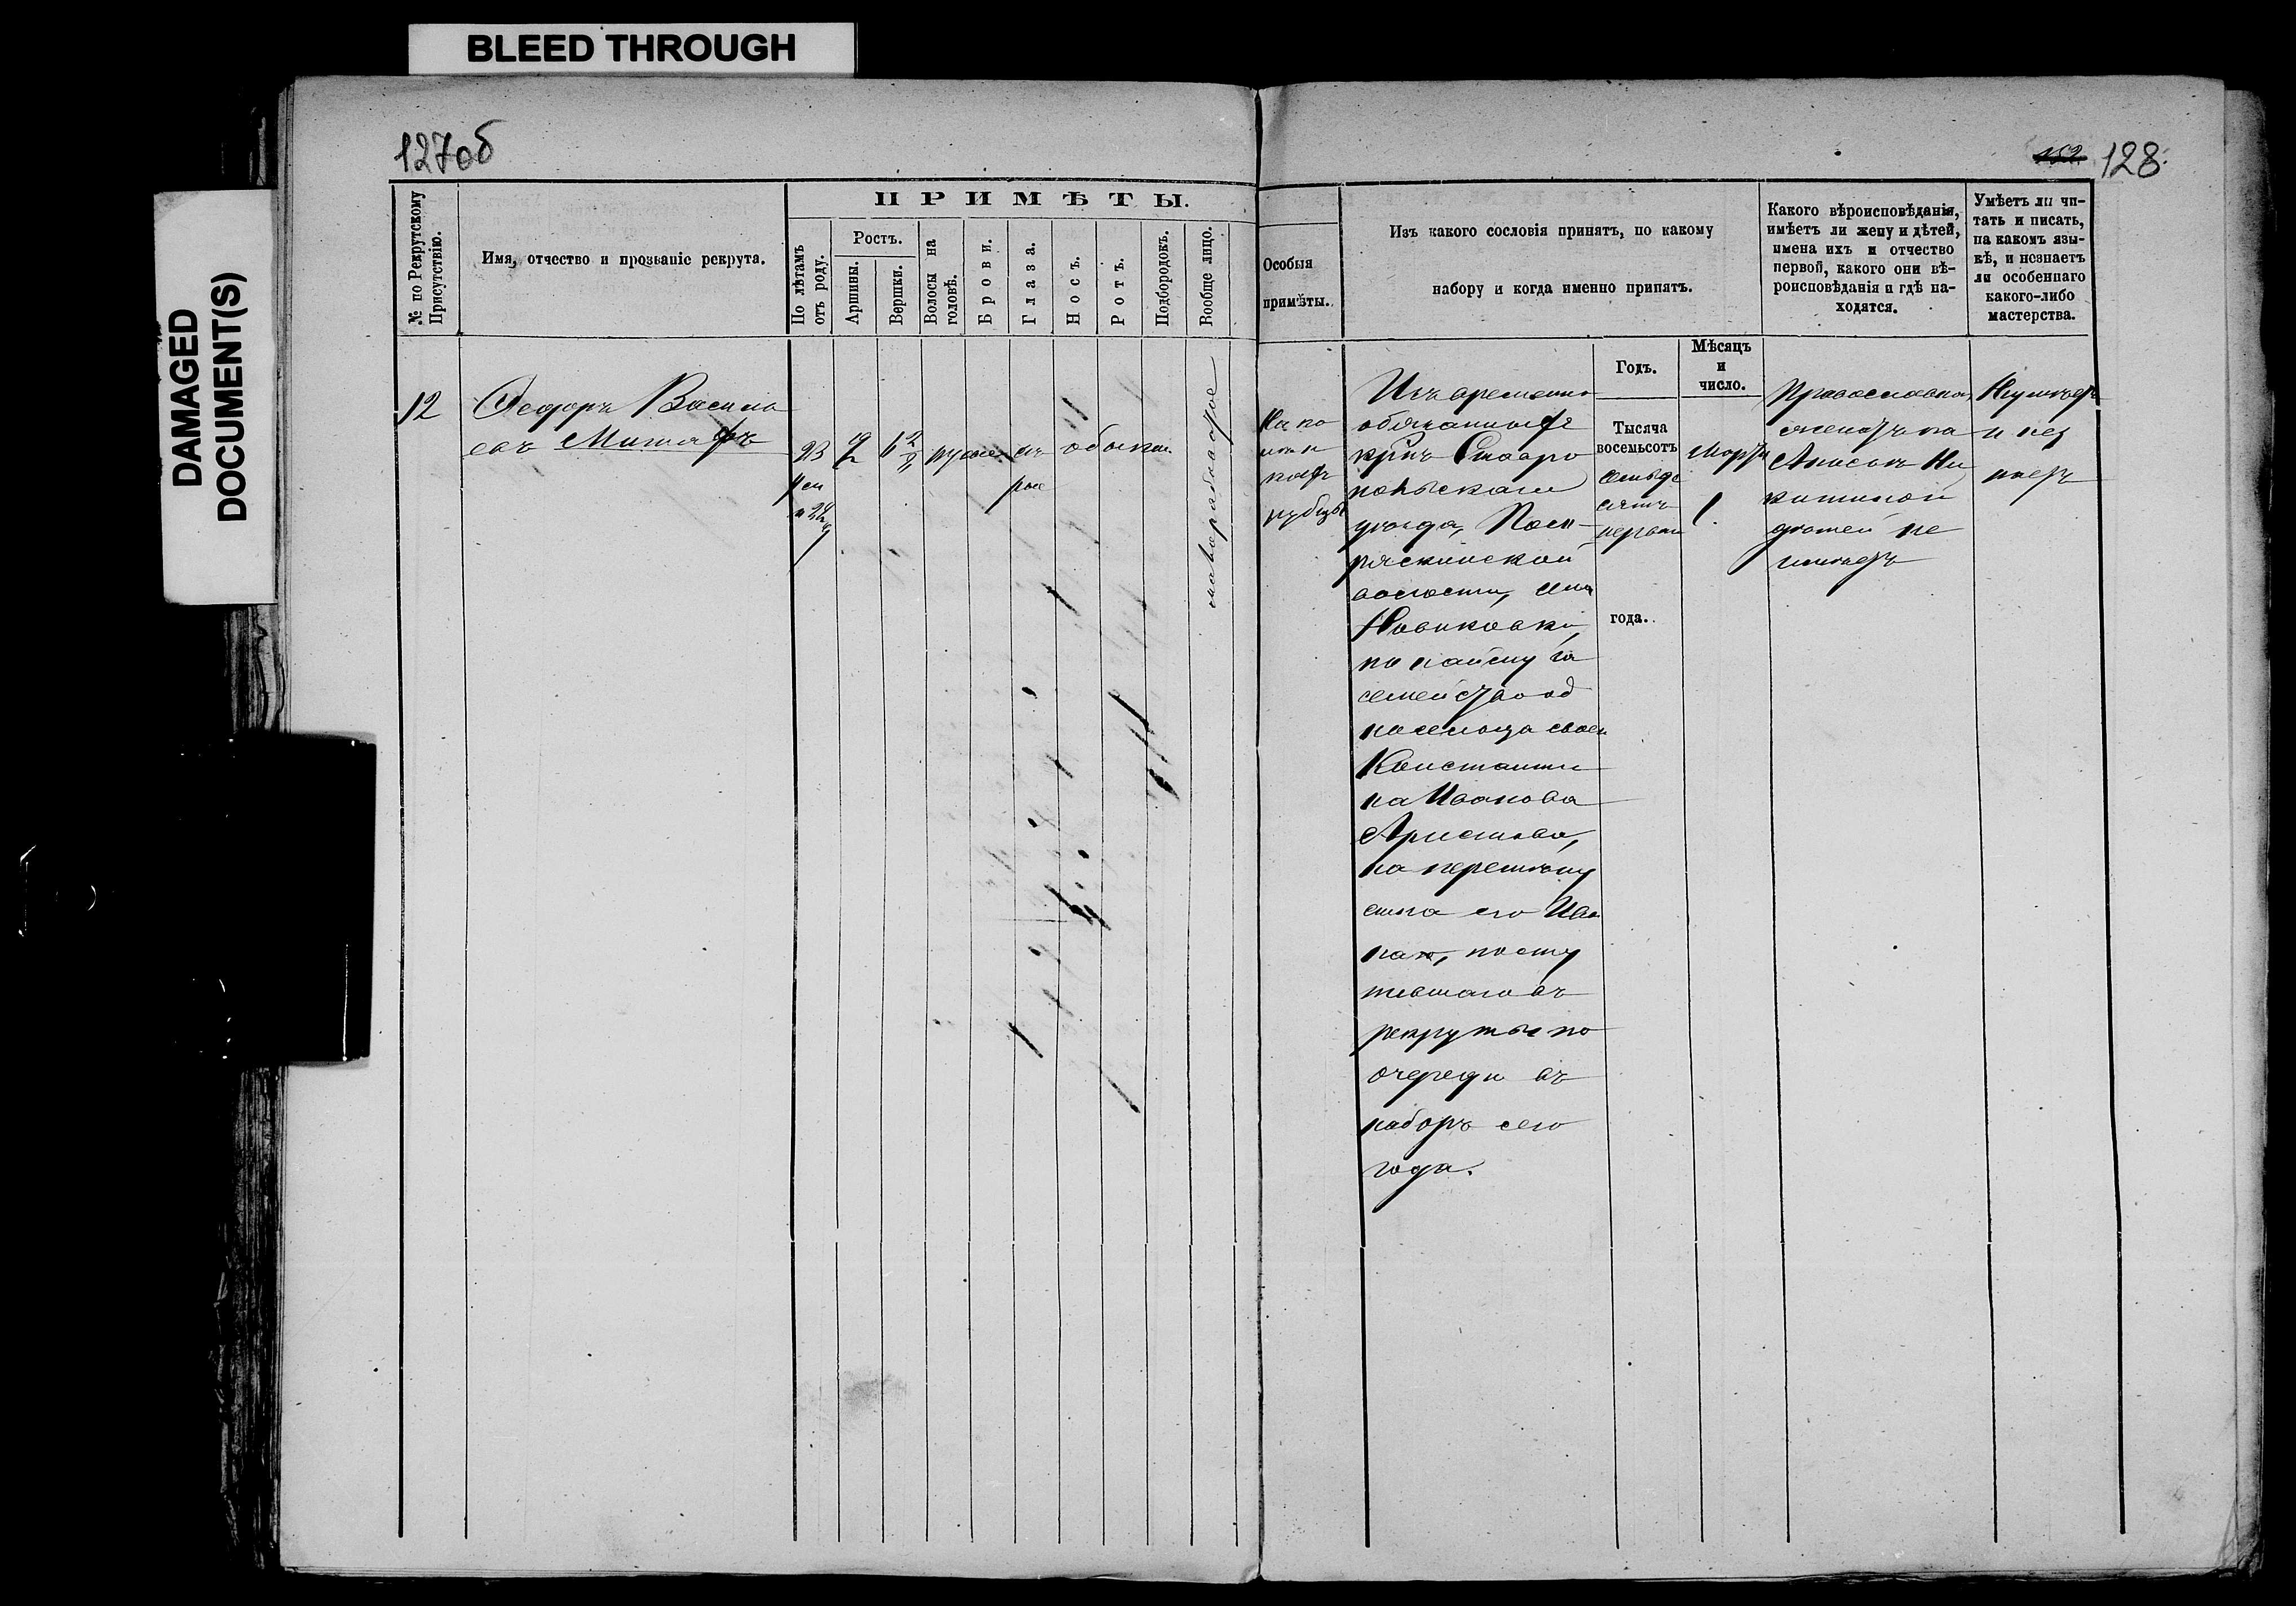 BLEED THROUGH
DAMAGED
DOCUMENT(S)
127об
152 128.
№ по Рекрутскому
Присутствію.
Имя, отчество и прозваніе рекрута.
ПРИМѢТЫ.
По лѣтамъ
отъ роду.
Ростъ.
Аршины.
Вершки.
Волосы на
головѣ.
Брови.
Глаза.
Носъ.
Ротъ.
Подбородокъ.
Вообще лицо.
Особыя
примѣты.
Изъ какого сословія принятъ, по какому
набору и когда именно принятъ.
Какого вѣроисповѣданія,
имѣетъ ли жену и дѣтей,
имена ихъ и отчество
первой, какого они вѣ-
роисповѣданія и гдѣ на-
ходятся.
Умѣетъ ли чи-
тать и писать,
на какомъ язы-
кѣ, и незнаетъ
ли особеннаго
какого-либо
мастерства.
Годъ.
Мѣсяцъ
и
число.
12
Федоръ Василь
евъ
23
2
6
русые
сѣ
рые
обыкн.
рябоватое
рубцы
Изъ временно
обязанныхъ
крнъ Ставро
польскаго
уѣзда,
волости, села
Новиковки,
по найму за
семейство од
носельца своего
Константи
на Иванова
на перемѣну
сына его Ива
на, посту
пившаго въ
рекруты по
очереди въ
наборъ сего
года.
Тысяча
восемьсотъ
семьде
сятъ
первый
года.
Марта
1.
Православнаго
женатъ на
Ни
китиной
дѣтей не
имѣетъ
Неумѣетъ
и нез
наетъ